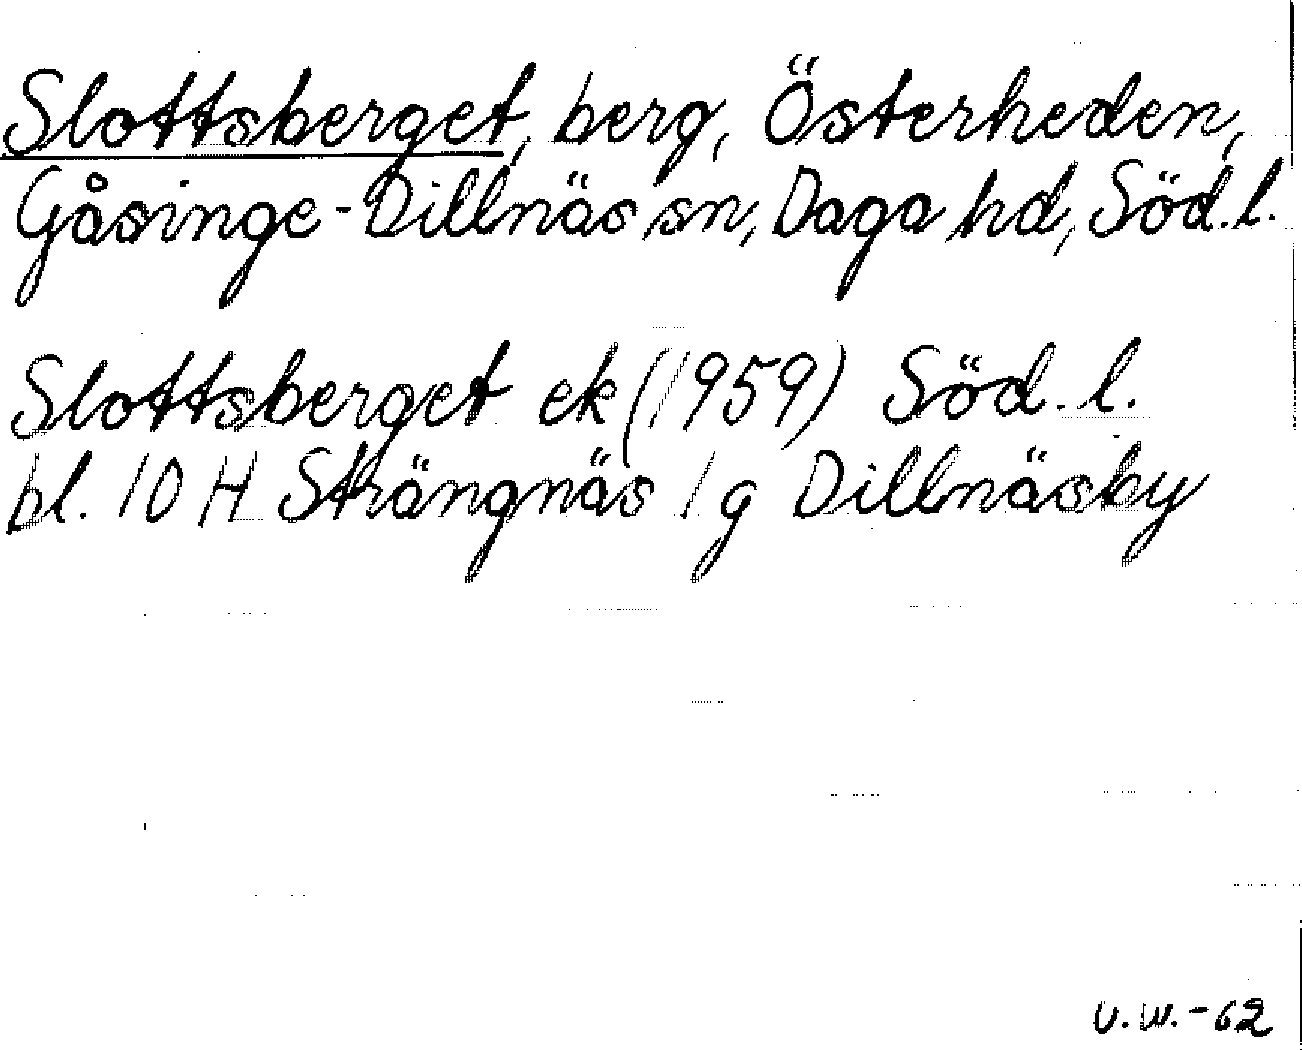 Slottsberget, berg, Österheden,
Gåsinge-Dillnäs sn, Daga hd, Söd. l.
Slottsberget ek (1959) Söd. l.
bl. 10 H Strängnäs 1 g Dillnäsby
U.W.-62